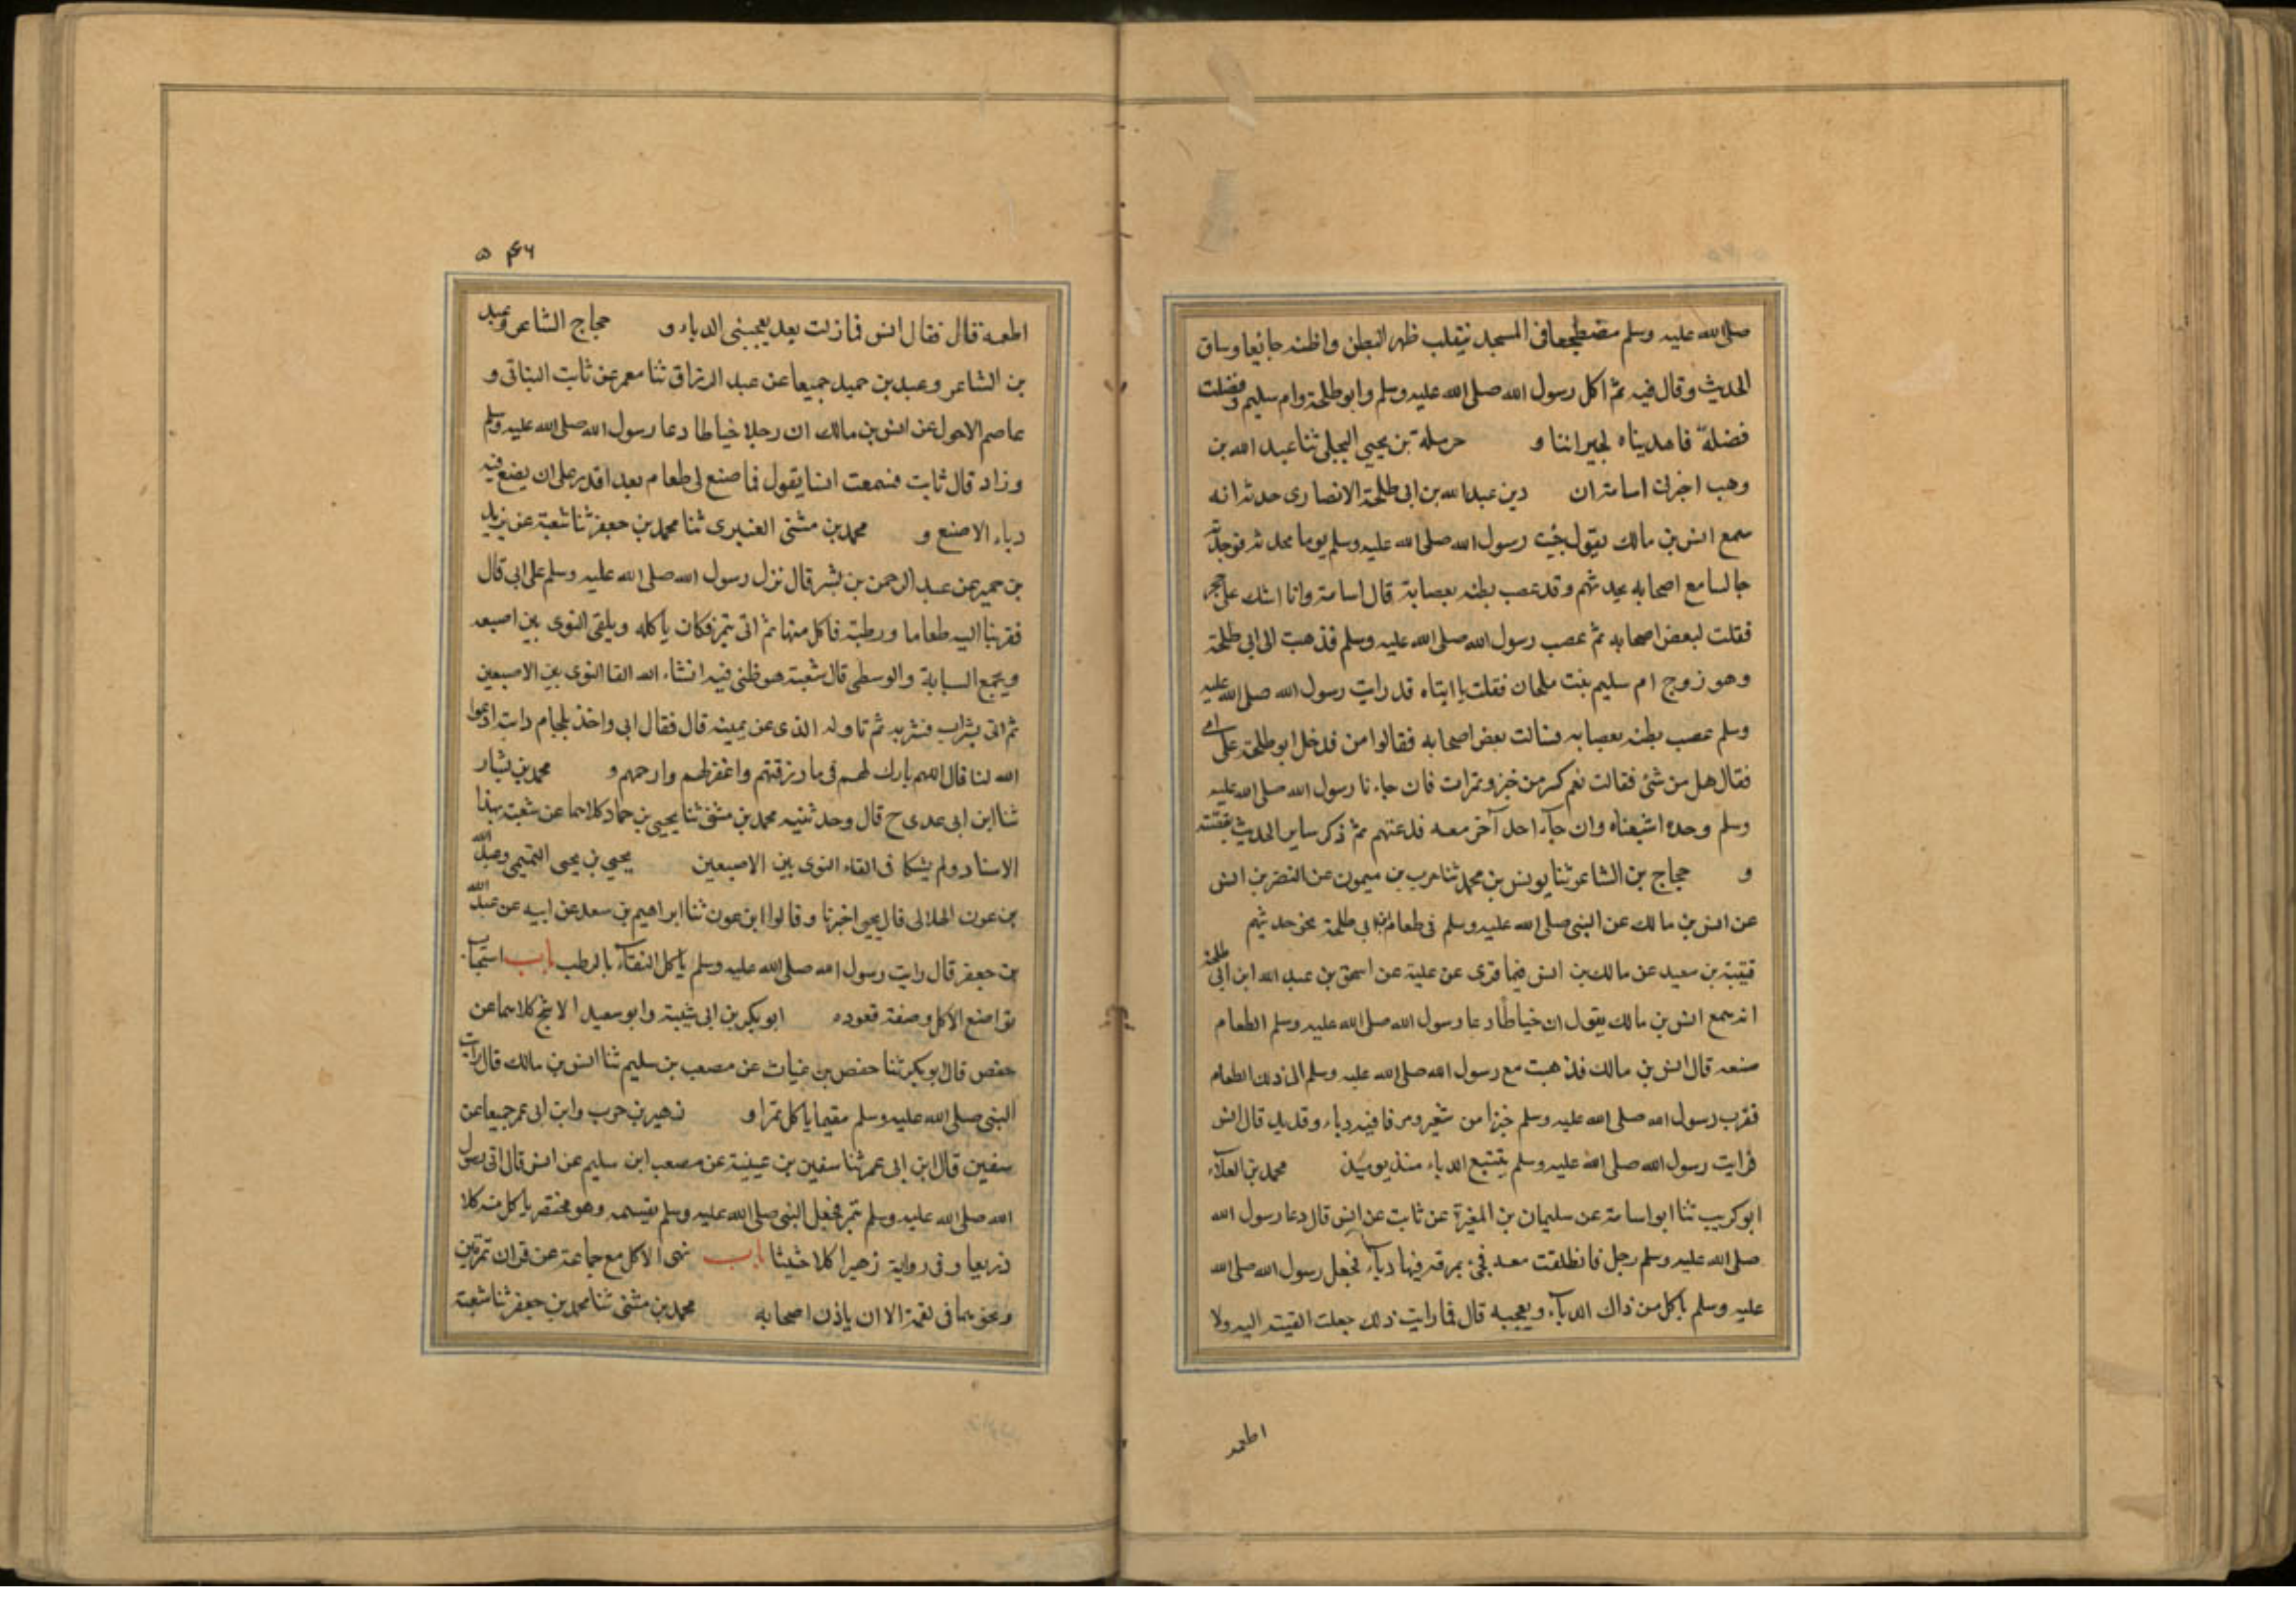 صلى الله عليه وسلم مضطجعا فى المسجد يتقلب ظهر البطن واظنه جائعا وساق
الحديث وقال فيه ثم اكل رسول الله صلى الله عليه وسلم وابو طلحة وام سليم وفضلت
فضلة فاهديناه لجيراننا و حرملة بن يحيى البجلى ثنا عبد الله بن
وهب اخبرنى اسامة ان دين عبد الله بن ابى طلحة الانصارى حدثه انه
سمع انس بن مالك يقول جئت رسول الله صلى الله عليه وسلم يوما فوجدته
جالسا مع اصحابه يحدثهم وقد عصب بطنه بعصابة قال اسامة وانا اشك على حجر
فقلت لبعض اصحابه ثم عصب رسول الله صلى الله عليه وسلم فذهبت الى ابى طلحة
وهو زوج ام سليم بنت ملحان فقلت يا ابتاه قد رايت رسول الله صلى الله عليه
وسلم عصب بطنه بعصابه فسالت بعض اصحابه فقالوا من فدخل ابو طلحة على امى
فقال هل من شئ فقالت نعم كسر من خبز وتمرات فان جاءنا رسول الله صلى الله عليه
وسلم وحده اشبعناه وان جاء احد آخر معه فدعتهم ثم ذكر ساير الحديث بقصته
و حجاج بن الشاعر ثنا يونس بن محمد ثنا حرب بن ميمون عن النضر بن انس
عن انس بن مالك عن النبى صلى الله عليه وسلم فى طعام ابى طلحة نحو حديثهم
قتيبة بن سعيد عن مالك بن انس فيما قرى عن علية عن اسحق بن عبد الله ابن ابى طلحة
انه سمع انس بن مالك يقول ان خياطا دعا رسول الله صلى الله عليه وسلم الطعام
صنعه قال انس بن مالك فذهبت مع رسول الله صلى الله عليه وسلم الى ذلك الطعام
فقرب رسول الله صلى الله عليه وسلم خبزا من شعير ومرقا فيه دباء وقديد قال انس
فرايت رسول الله صلى الله عليه وسلم يتتبع الدباء منذ يومئذ محمد بن العلاء
ابو كريب ثنا ابو اسامة عن سليمان بن المغيرة عن ثابت عن انس قال دعا رسول الله
صلى الله عليه وسلم رجل فانطلقت معه فجئ بمرقة فيها دباء فجعل رسول الله صلى الله
عليه وسلم ياكل من ذاك الدباء ويعجبه قال فلما رايت ذلك جعلت القيته اليه ولا
اطعمه
۵۴۶
اطعمه قال فقال انس فما زلت بعد يعجبنى الدباء و حجاج الشاعر وعبد
بن الشاعر وعبد بن حميد جميعا عن عبد الرزاق ثنا معمر عن ثابت البنانى و
عاصم الاحول عن انس بن مالك ان رجلا خياطا دعا رسول الله صلى الله عليه وسلم
وزاد قال ثابت فسمعت انسا يقول فما صنع لى طعام بعد اقدر على ان يصنع فيه
دباء الا صنع و محمد بن مثنى العنبرى ثنا محمد بن جعفر ثنا شعبة عن يزيد
بن حمير عن عبد الرحمن بن بشر قال نزل رسول الله صلى الله عليه وسلم على ابى قال
فقربنا اليه طعاما ورطبة فاكل منها ثم اتى بتمر فكان ياكله ويلقى النوى بين اصبعه
ويجمع السبابة والوسطى قال شعبة هو ظنى فيه انشاء الله القا النوى بين الاصبعين
ثم اتى بشراب فشربه ثم ناوله الذى عن يمينه قال فقال ابى واخذ بلجام دابته ادعوا
الله لنا قال اللهم بارك لهم فى ما رزقتهم واغفر لهم وارحمهم و محمد بن بشار
ثنا ابن ابى عدى ح قال وحدثنيه محمد بن مثنى ثنا يحيى بن حماد كلاهما عن شعبة بهذا
الاسناد ولم يشكا فى القاء النوى بين الاصبعين يحيى بن يحيى التميمى وعبد الله
بن عون الهلالى قال يحيى اخبرنا وقالوا ابن عون ثنا ابراهيم بن سعد عن ابيه عن عبد الله
بن جعفر قال رايت رسول الله صلى الله عليه وسلم ياكل القثاء بالرطب باب استحباب
تواضع الاكل وصفة قعوده ابو بكر بن ابى شيبة وابو سعيد الاشج كلاهما عن
حفص قال ابو بكر ثنا حفص بن غياث عن مصعب بن سليم ثنا انس بن مالك قال رايت
النبى صلى الله عليه وسلم مقيما ياكل تمرا و زهير بن حرب وابن ابى عمر جميعا عن
سفين قال ابن ابى عمر ثنا سفين بن عيينة عن مصعب ابن سليم عن انس قال اتى رسول
الله صلى الله عليه وسلم بتمر فجعل النبى صلى الله عليه وسلم يقسمه وهو محتفز ياكل منه كلا
ذريعا وفى رواية زهير اكلا حثيثا باب نهى الاكل مع جماعة عن قران تمرتين
ونحوهما فى لقمة الا ان ياذن اصحابه محمد بن مثنى ثنا محمد بن جعفر ثنا شعبة